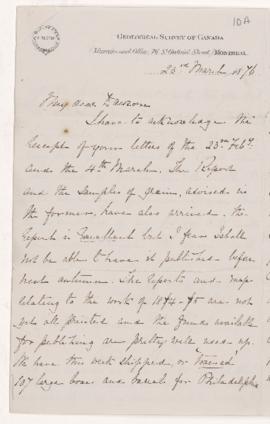 10A
GEOLOGICAL SURVEY OF CANADA
Museum and Office, 76 St. Gabriel Street, MONTREAL
23rd March 1876
My dear Dawson
I have to acknowledge the
receipt of your letters of the 23rd Feby.
and the 4th March. The Report
and the samples of grain, advised in
the former, have also arrived. the
report is Excellent but I fear I shall
not be able to have it published before
next autumn. The reports and map
relating to the work of 1874-75 are not
yet all printed and the funds available
for publishing are pretty well used up.
We have this week shipped, or
107 large boxes and barrels for Philadelphia